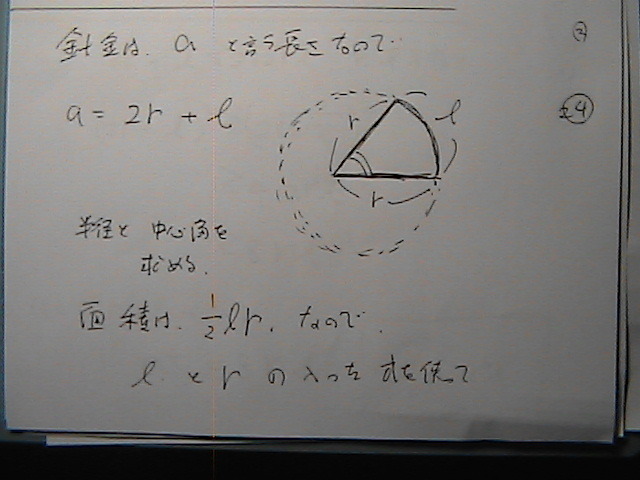 針金は、a と言う長さなので…
a = 2r + l
r
l
r
半径と 中心角を
求める。
面積は、1/2 lr、なので、
l と r の入った式を使って
④